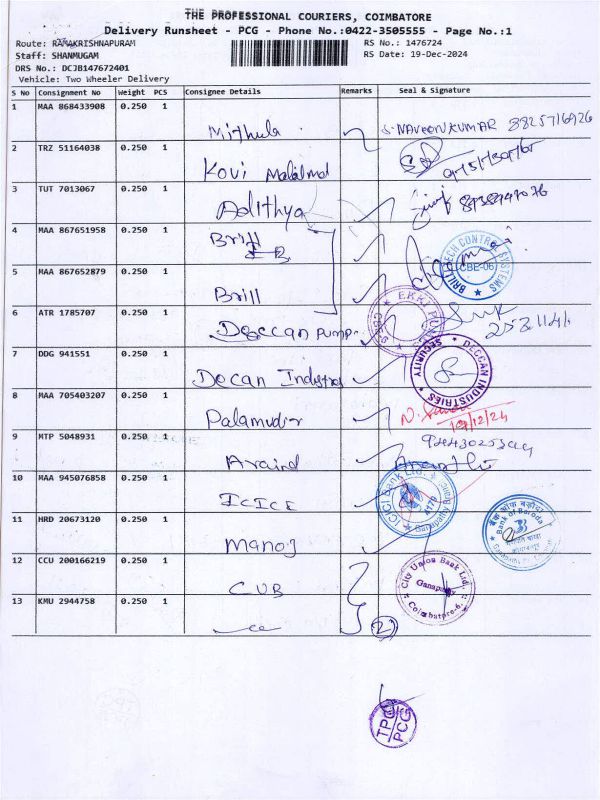 THE PROFESSIONAL COURIERS, COIMBATORE
Delivery Runsheet - PCG - Phone No.:0422-3505555 - Page No.:1
Route: RAMAKRISHNAPURAM
RS No.: 1476724
Staff: SHANMUGAM
RS Date: 19-Dec-2024
DRS No.: DCJB147672401
Vehicle: Two Wheeler Delivery
S No Consignment No Weight PCS Consignee Details Remarks Seal & Signature
1 MAA 868433908 0.250 1
Mithula S. NAVEENKUMAR
2 TRZ 51164038 0.250 1
Kovi
3 TUT 7013067 0.250 1
Adithya
4 MAA 867651958 0.250 1
Brill
BRILLTECH CONTROL SYSTEMS
CBE-06
5 MAA 867652879 0.250 1
Brill
6 ATR 1785707 0.250 1
Deccan Pump
7 DDG 941551 0.250 1
DECCAN INDUSTRIES
SECURITY
Decan
8 MAA 705403207 0.250 1
Palamudir
19/12/24
9 MTP 5048931 0.250 1
Aravind
10 MAA 945076858 0.250 1
ICICI
ICICI Bank Ltd.
11 HRD 20673120 0.250 1
Manoj
बैंक ऑफ़ बड़ौदा
Bank of Baroda
12 CCU 200166219 0.250 1
CUB
City Union Bank Ltd.
Ganapathy
Coimbatore-6.
13 KMU 2944758 0.250 1
2
TPC
PCG